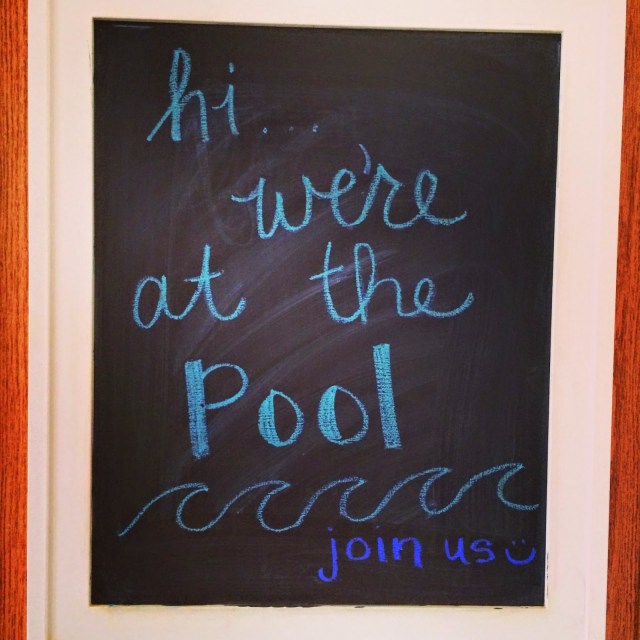 hi...
we're
at the
Pool
join us